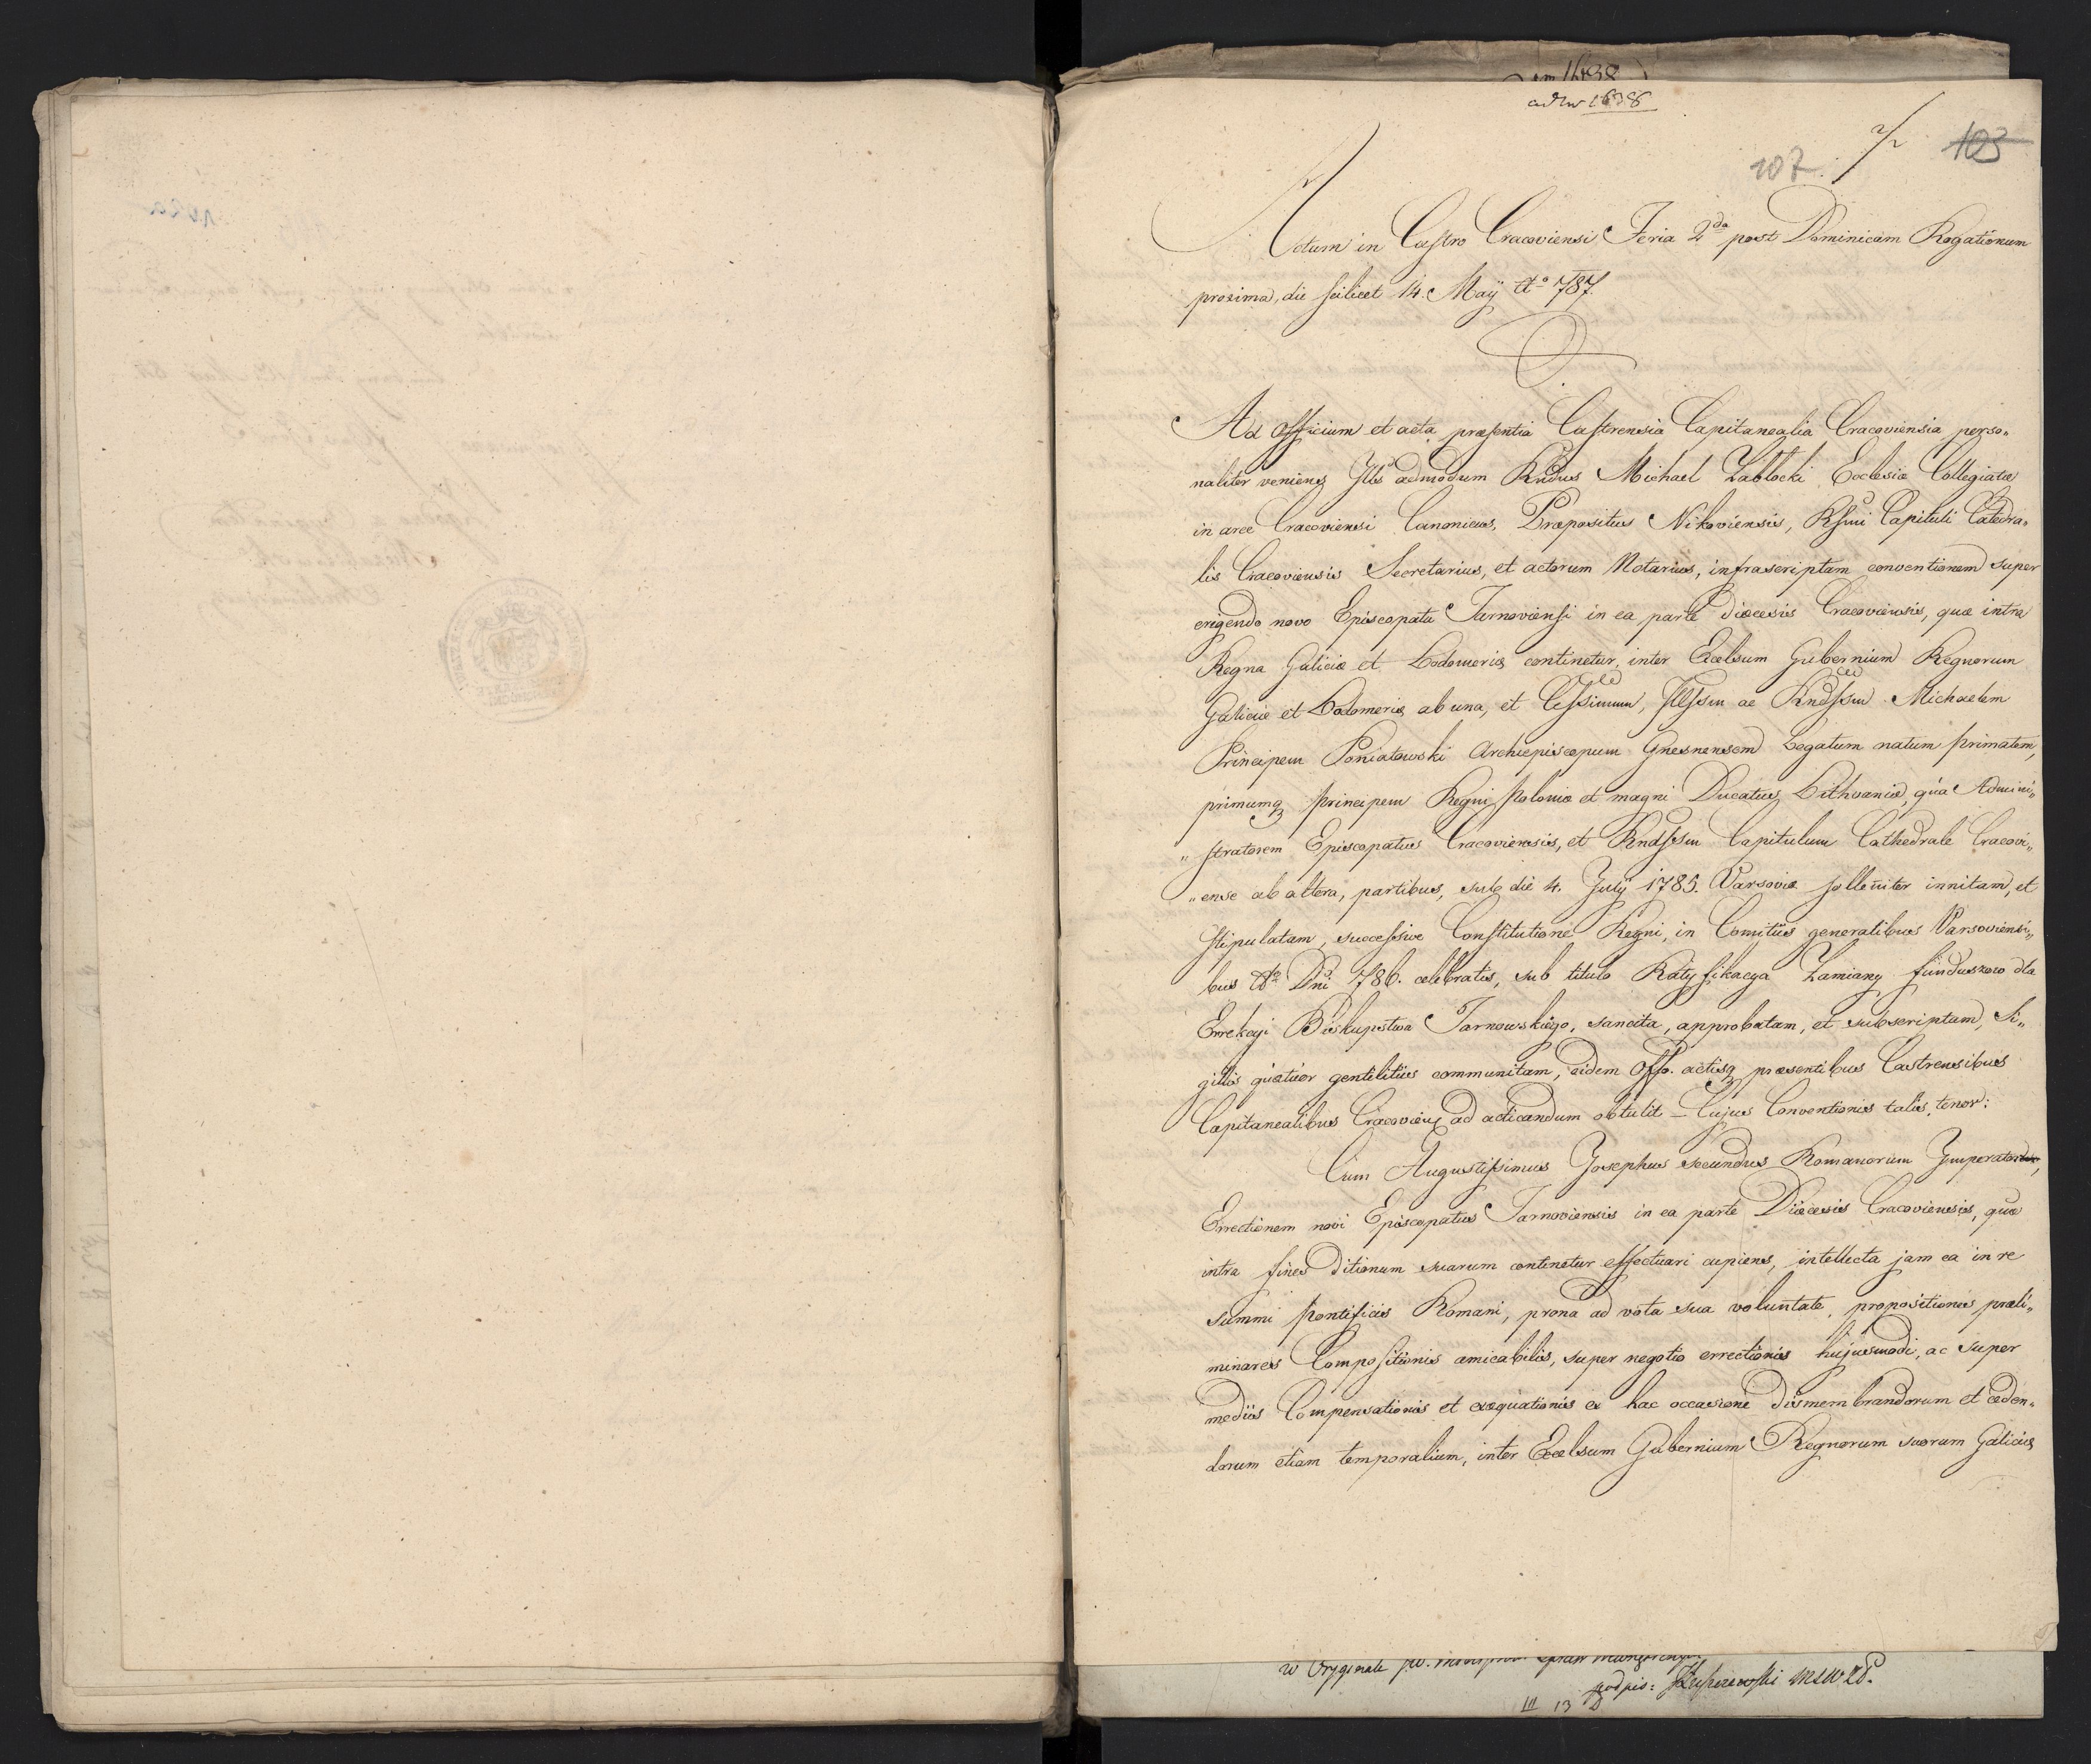 ad Nr 1638
107. 103
Actum in Castro Cracoviensi Feria 2da post Dominicam Rogationum
proxima, die scilicet 14. Maÿ Ao 787.
Ad Officium et acta præsentia Castrensia Capitanealia Cracoviensia perso„
naliter veniens Illis admodum Rndus Michael Zabłocki Ecclesiæ Collegiatæ
in arce Cracoviensi Canonicus, Præpositus Nikoviensis, Rssmi Capituli Catedra„
lis Cracoviensis Secretarius, et actorum Notarius, infrascriptam conventionem super
erigendo novo Episcopatu Tarnoviensi in ea parte diœcesis Cracoviensis, quæ intra
Regna Galiciæ et Lodomeriæ continetur, inter Excelsum Gubernium Regnorum
Galiciæ et Lodomeriæ ab una, et Cessimum, Illssm ac Rndssm Michaelem
Principem Poniatowski Archiepiscopum Gnesnensem Legatum natum primatem,
primumq principem Regni Poloniæ et magni Ducatus Lithvaniæ, quà Admini„
„stratorem Episcopatus Cracoviensis, et Rndssm Capitulum Cathedrale Cracovi„
„ense ab altera, partibus, sub die 4. Julÿ 1785. Varsoviæ solleniter innitam, et
stipulatam, successive Constitutione Regni, in Comitiis generalibus Varsoviensi„
bus Ao Dni 786. celebratis, sub titulo Ratyfikacya Zamiany funduszow dla
Errekcyi Biskupstwa Tarnowskiego, sancita, approbatam, et subscriptam, Si„
gillis quatuor gentilitiis communitam, eidem Offo. actisq præsentibus Castrensibus
Capitanealibus Cracovien ad acticandum obtulit – Cujus Conventionis talis, tenor:
Cum Augustissimus Josephus secundus Romanorum Imperator,
Errectionem novi Episcopatus Tarnoviensis in ea parte Diœcesis Cracoviensis, quæ
intra fines ditionum suarum continetur effectuari cupiens, intellecta jam ea in re
summi Pontificis Romani, prona ad vota sua voluntate, propositiones præli„
minares Compositionis amicabilis, super negotio errectionis hujusmodi, ac super
mediis Compensationis et exæquationis ex hac occasione dismembrandorum et ceden„
dorum etiam temporalium, inter Excelsum Gubernium Regnorum suorum Galiciæ
w Oryginale
podpis:
III 13